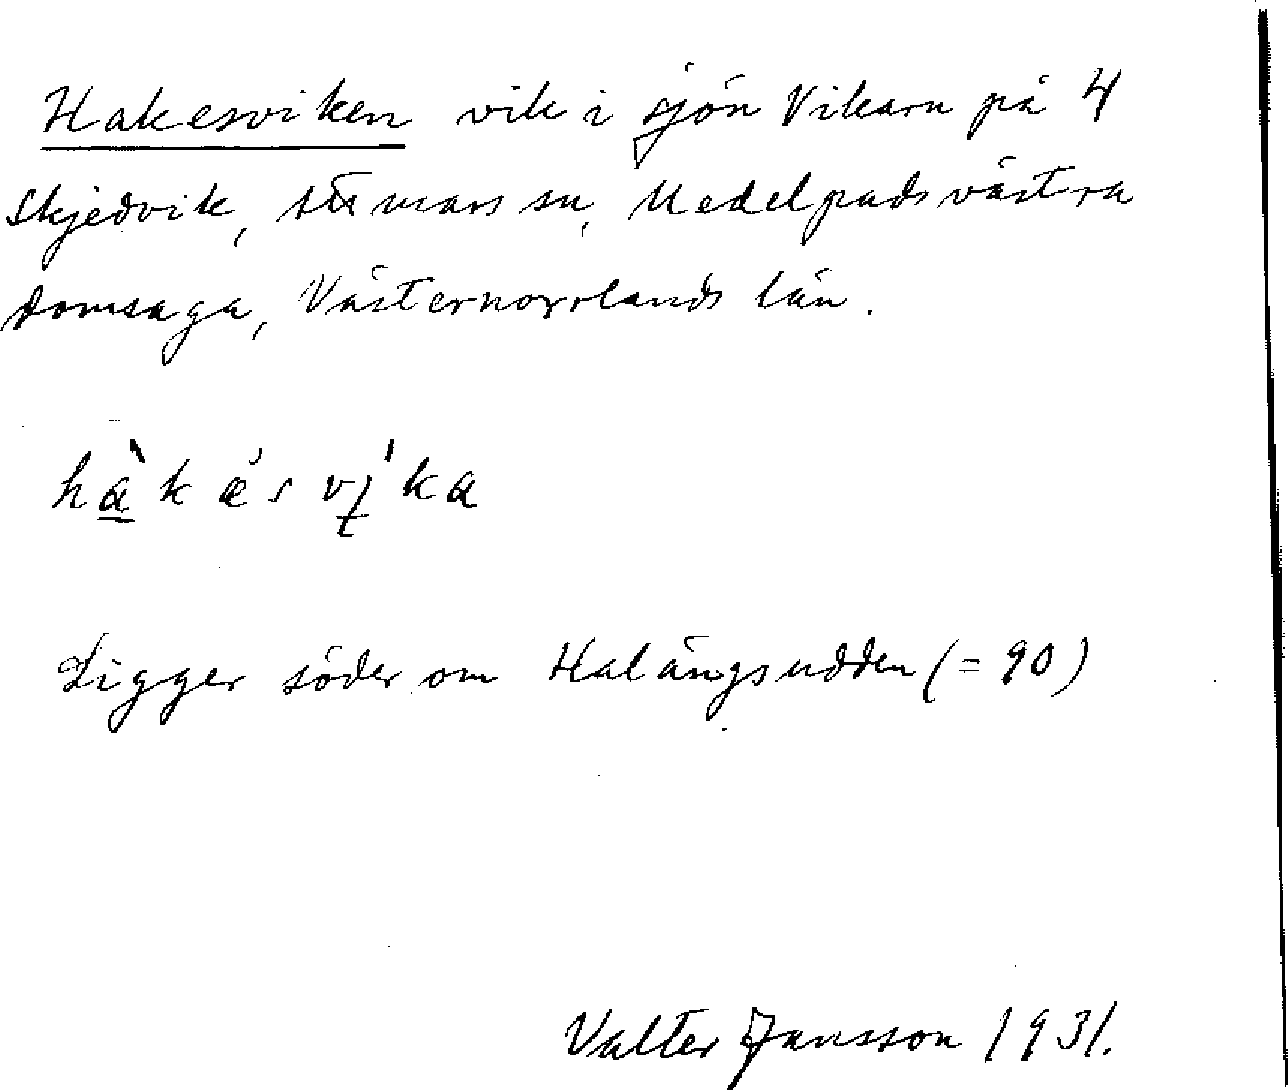 Hakesviken vik i sjön Vikarn på 4
Skjedvik, mans sn, Medelpads västra
domsaga, Västernorrlands län.
hàkésvi̱'ka
Ligger söder om Halängsudden (= 90)
Valter Jansson 1931.